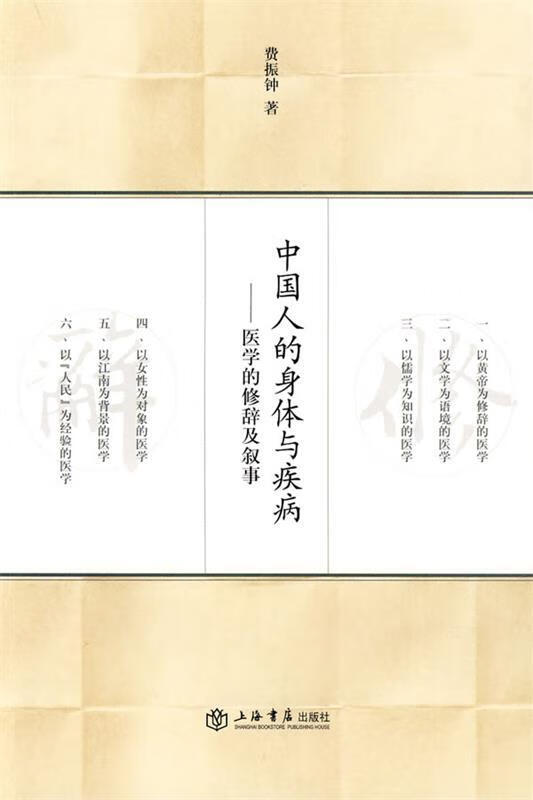 费振钟 著
中国人的身体与疾病
——医学的修辞及叙事
一、以黄帝为修辞的医学
二、以文学为语境的医学
三、以儒学为知识的医学
四、以女性为对象的医学
五、以江南为背景的医学
六、以『人民』为经验的医学
修
辭
上海书店出版社
SHANGHAI BOOKSTORE PUBLISHING HOUSE